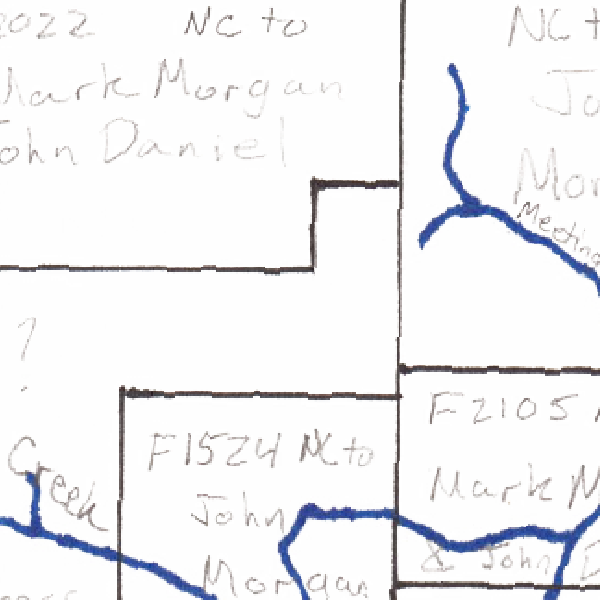 2022 NC to
Mark Morgan
John Daniel
NC t
Jo
Mor
Meeting
?
Creek
F1524 NC to
John
Morgan
F2105 N
Mark M
& John D